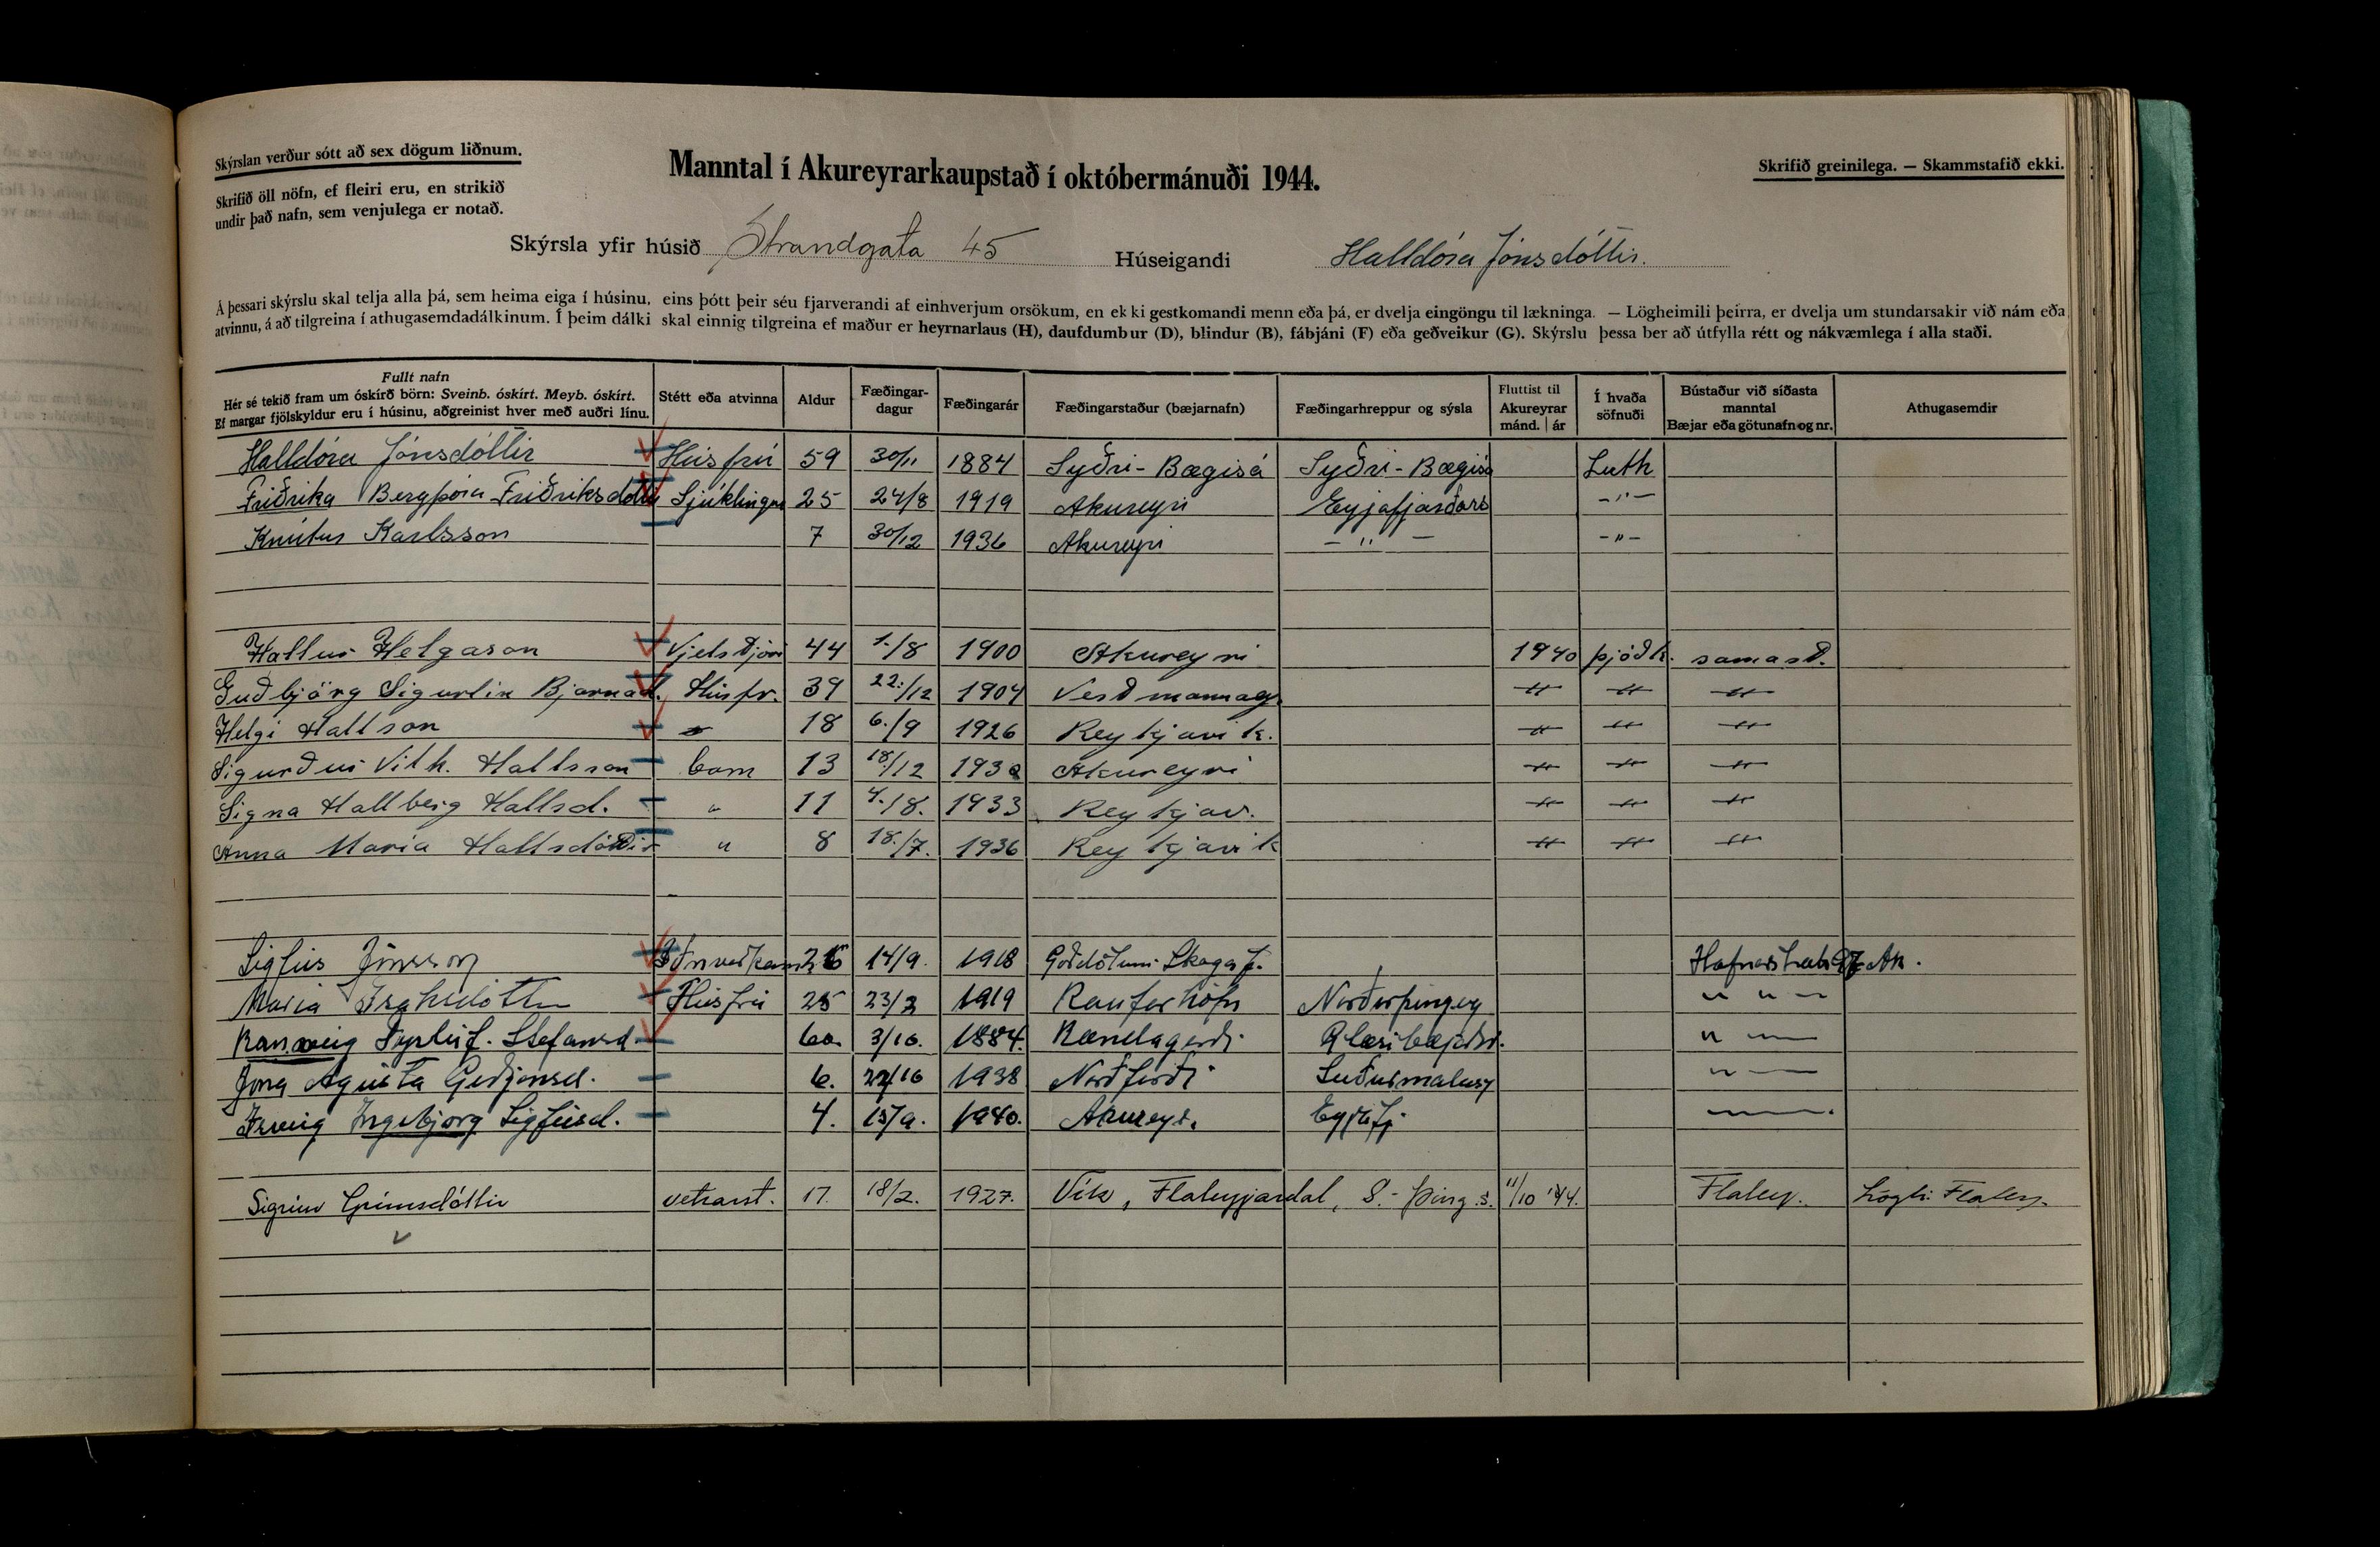 Skýrslan verður sótt að sex dögum liðnum.
Skrifið öll nöfn, ef fleiri eru, en strikið
undir það nafn, sem venjulega er notað.
Manntal í Akureyrarkaupstað í októbermánuði 1944.
Skrifið greinilega. — Skammstafið ekki.
Skýrsla yfir húsið Strandgata 45 Húseigandi Halldóra Jónsdóttir.
Á þessari skýrslu skal telja alla þá, sem heima eiga í húsinu, eins þótt þeir séu fjarverandi af einhverjum orsökum, en ekki gestkomandi menn eða þá, er dvelja eingöngu til lækninga. — Lögheimili þeirra, er dvelja um stundarsakir við nám eða
atvinnu, á að tilgreina í athugasemdadálkinum. Í þeim dálki skal einnig tilgreina ef maður er heyrnarlaus (H), daufdumbur (D), blindur (B), fábjáni (F) eða geðveikur (G). Skýrslu þessa ber að útfylla rétt og nákvæmlega í alla staði.
Fullt nafn
Hér sé tekið fram um óskírð börn: Sveinb. óskírt. Meyb. óskírt.
Ef margar fjölskyldur eru í húsinu, aðgreinist hver með auðri línu.
Stétt eða atvinna
Aldur
Fæðingar-
dagur
Fæðingarár
Fæðingarstaður (bæjarnafn)
Fæðingarhreppur og sýsla
Fluttist til
Akureyrar
mánd. | ár
Í hvaða
söfnuði
Bústaður við síðasta
manntal
Bæjar eða götunafn og nr.
Athugasemdir
Halldóra Jónsdóttir Húsfrú 59 30/11 1884 Syðri-Bægisá Syðri-Bægisá Luth
Friðrika Bergþóra Friðriksdóttir Sjúklingur 25 24/8 1919 Akureyri Eyjafjarðars -"-
Knútur Karlsson 7 30/12 1936 Akureyri - " - -"-
Hallur Helgason Vjelstjóri 44 1./8 1900 Akureyri 1940 þjóðk. samast.
Guðbjörg Sigurlín Bjarnad. Húsfr. 39 22./12 1904 Vestmannaey. -"- -"- -"-
Helgi Hallson 18 6./9 1926 Reykjavik. -"- -"- -"-
Sigurður Vilh. Hallsson barn 13 18/12 1930 Akureyri -"- -"- -"-
Signa Hallberg Hallsd. " 11 4./8. 1933 Reykjav. -"- -"- -"-
Anna María Hallsdóttir " 8 18./7. 1936 Reykjavik -"- -"- -"-
Sigfús Jónsson 26 14/9. 1918 Goðdölum Skagaf. Hafnarstræti 97 Ak.
María Húsfrú 25 23/2 1919 Raufarhöfn Norðurþingey " " -
Rannveig Stefansd. 60. 3/10. 1884. Rændagerði Glæsibæjahr. " -
Jóna Agústa Geðjonsd. 6. 1938 Norðfirði Suðurmulasy " -
Ingebjorg Sigfúsd. 4. 15/9. 1940. Akureyr. Eyjafj.
Sigrún Grímsdóttir vetrarst. 17. 18/2. 1927. Vík, Flateyjardal, S.-Þing.s. 11/10 '44. Flatey. Lögh: Flatey.